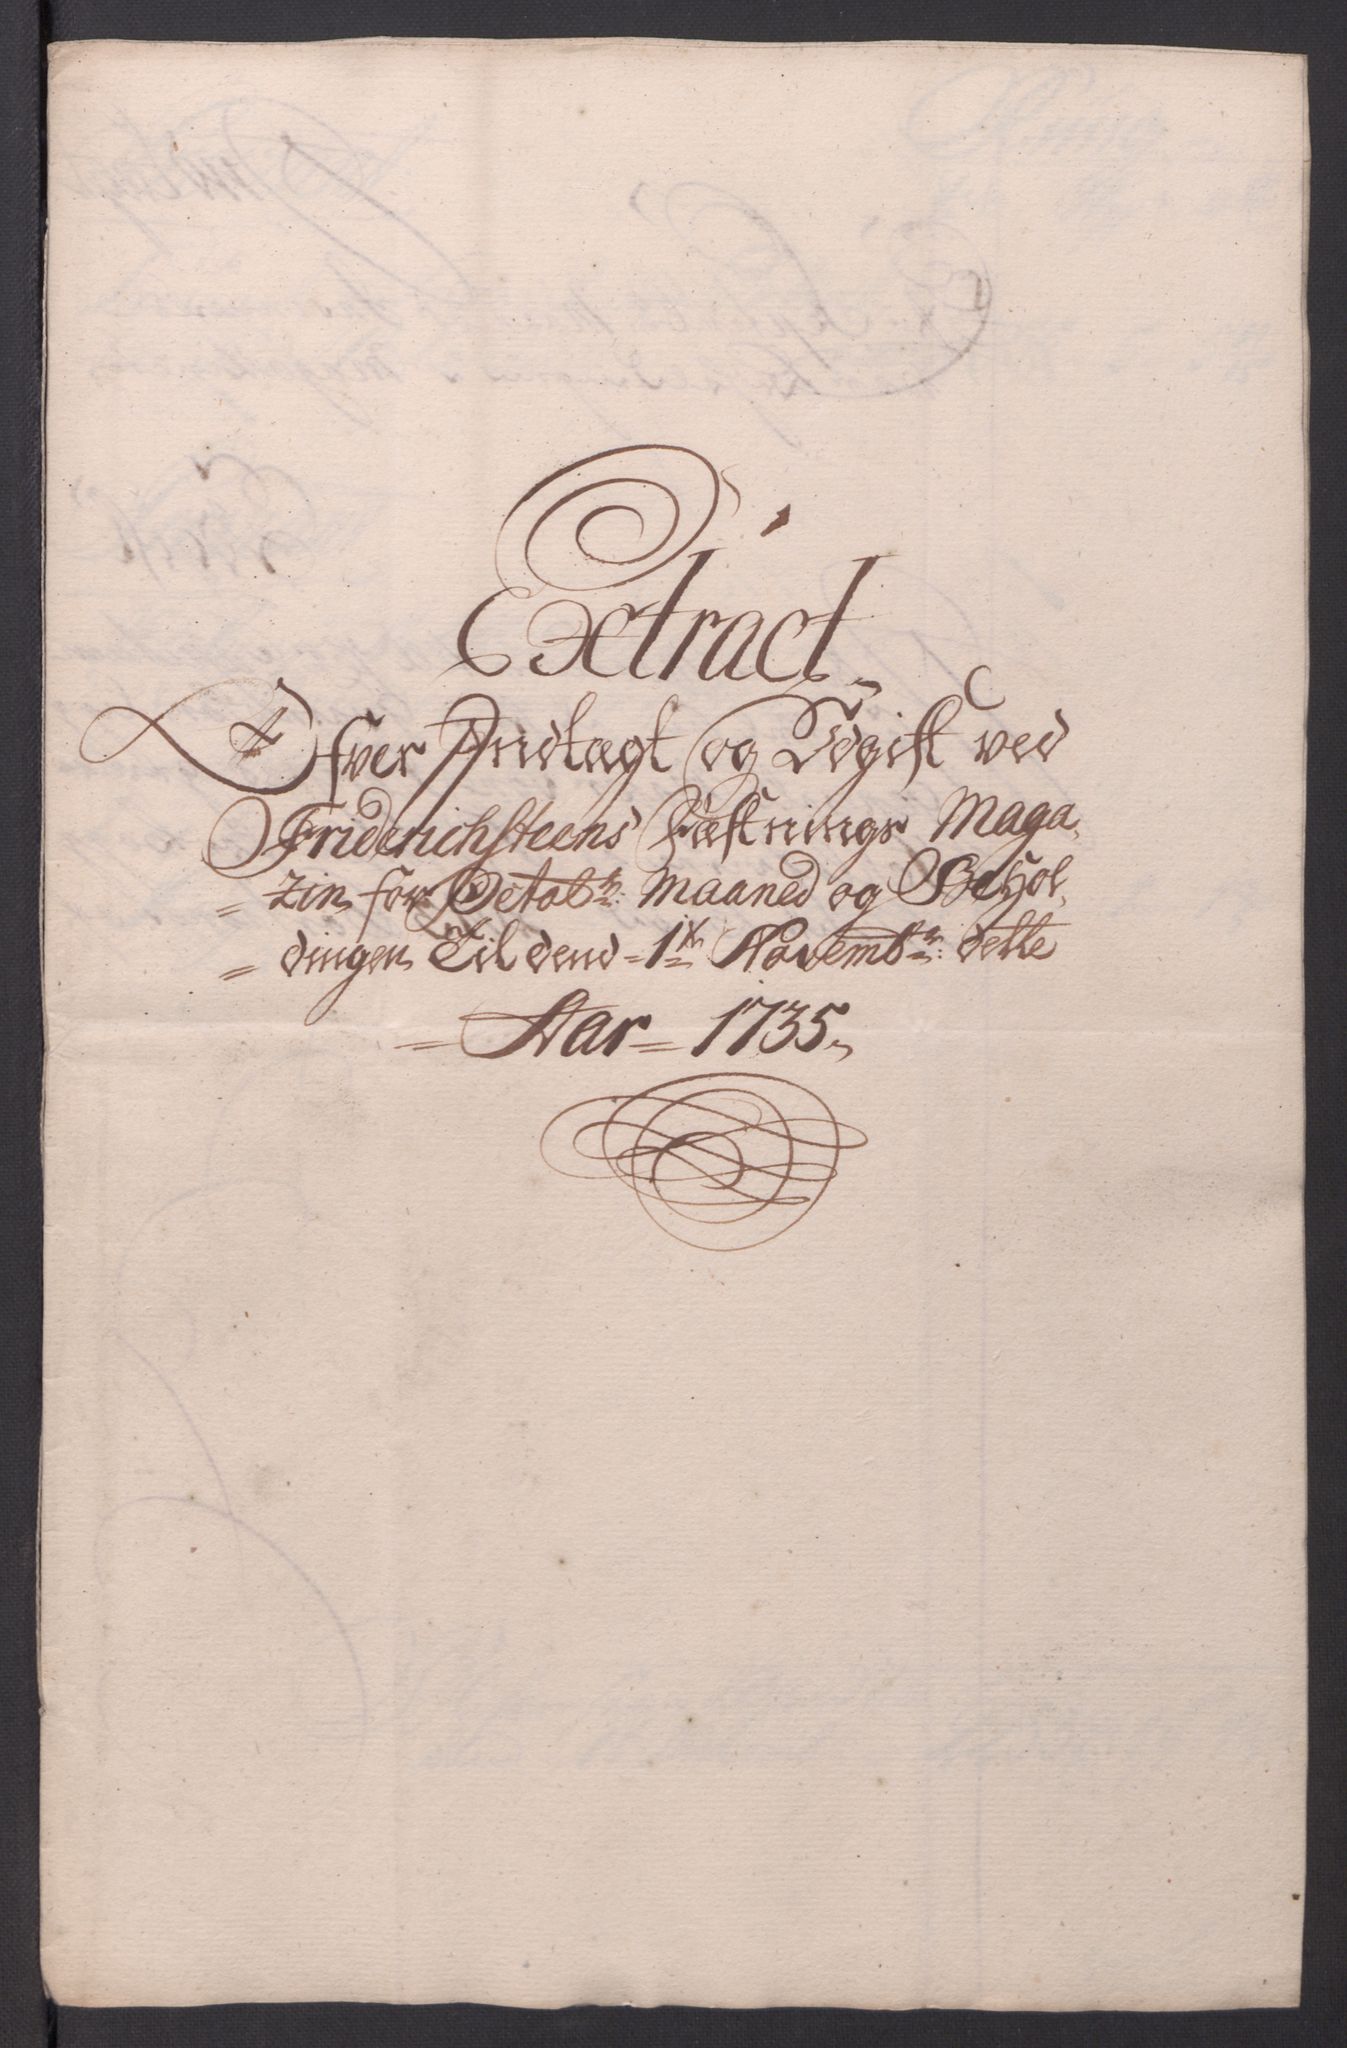 Extract
Ofver Indtægt og Udgift ved
Friderichsteens Fæstnings Maga,
= zin for Octobr: Maaned og Behol,
= dingen Til dend = 1te Novembr: dette
= Aar = 1735.